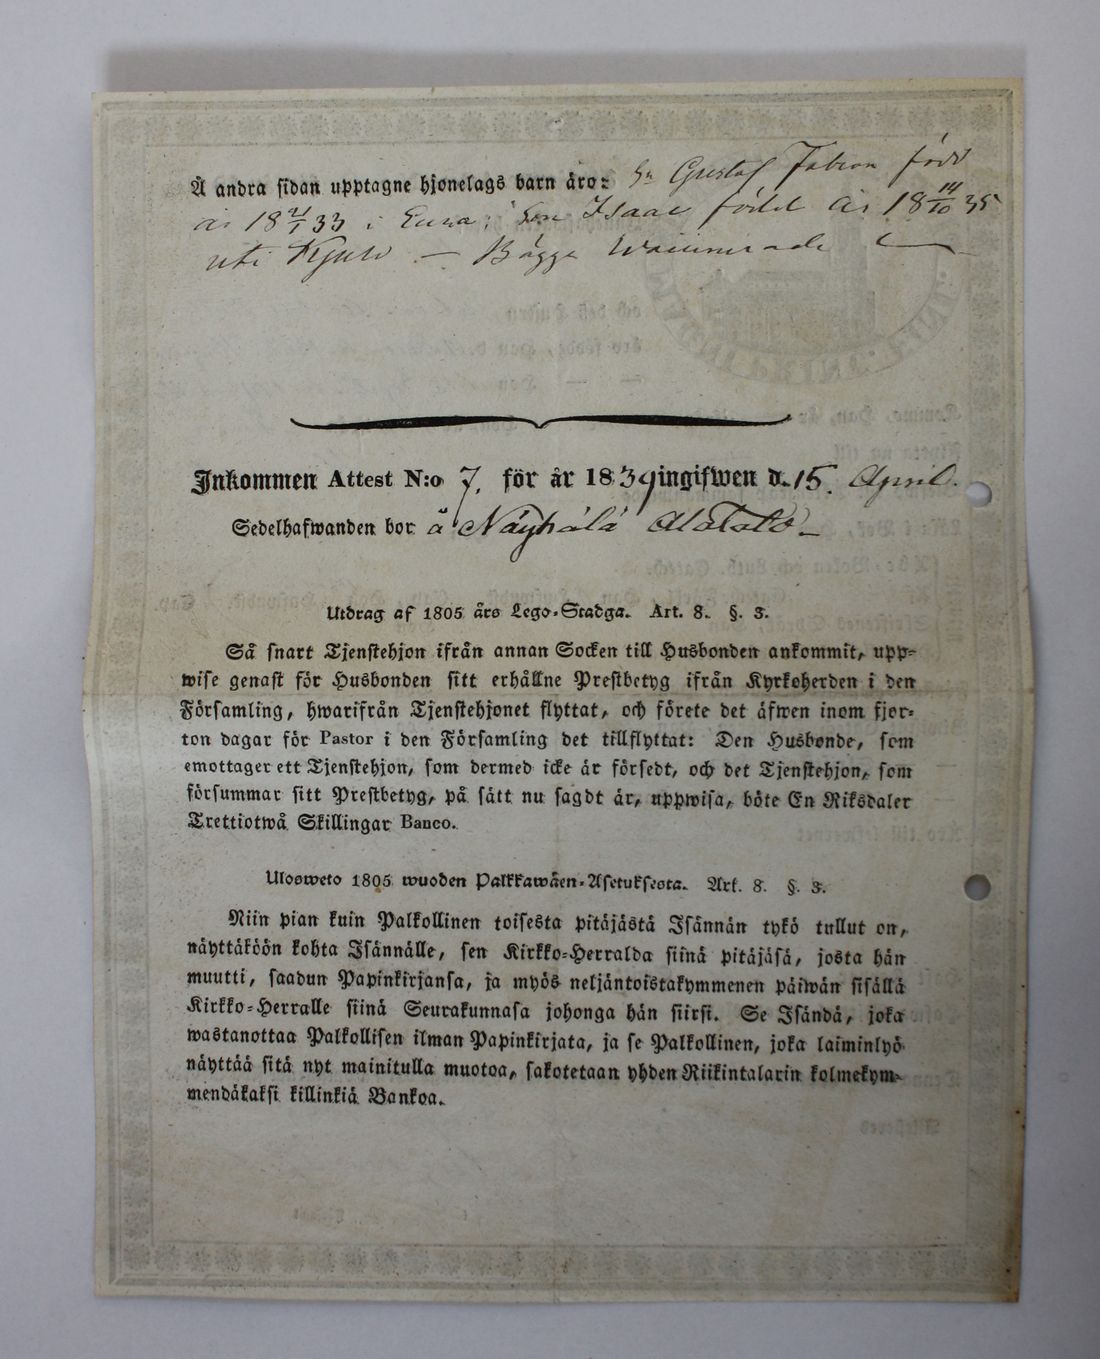 Å andra sidan upptagne hjonelags barn äro: Sn Gustaf Fabian född
år 18 21/1 33 i Eura; Son Isaac född år 18 14/10 35
uti Kjulo — Bägge Waccinerade
Inkommen Attest N:o 7. för år 1839 ingifwen d. 15. April.
Sedelhafwanden bor å Näyhälä Alatalo
Utdrag af 1805 års Lego-Stadga. Art. 8. §. 3.
Så snart Tjenstehjon ifrån annan Socken till Husbonden ankommit, upp-
wise genast för Husbonden sitt erhållne Prestbetyg ifrån Kyrkoherden i den
Församling, hwarifrån Tjenstehjonet flyttat, och förete det äfwen inom fjor-
ton dagar för Pastor i den Församling det tillflyttat: Den Husbonde, som
emottager ett Tjenstehjon, som dermed icke är försedt, och det Tjenstehjon, som
försummar sitt Prestbetyg, på sätt nu sagdt är, uppwisa, böte En Riksdaler
Trettiotwå Skillingar Banco.
Ulosweto 1805 wuoden Palkkawäen-Asetuksesta. Art. 8. §. 3.
Niin pian kuin Palkollinen toisesta pitäjästä Isännän tykö tullut on,
näyttäköön kohta Isännälle, sen Kirkko-Herralda siinä pitäjäsä, josta hän
muutti, saadun Papinkirjansa, ja myös neljäntoistakymmenen päiwän sisällä
Kirkko-Herralle siinä Seurakunnasa johonga hän siirsi. Se Isändä, joka
wastanottaa Palkollisen ilman Papinkirjata, ja se Palkollinen, joka laiminlyö
näyttää sitä nyt mainitulla muotoa, sakotetaan yhden Riikintalarin kolmekym-
mendäkaksi killinkiä Bankoa.